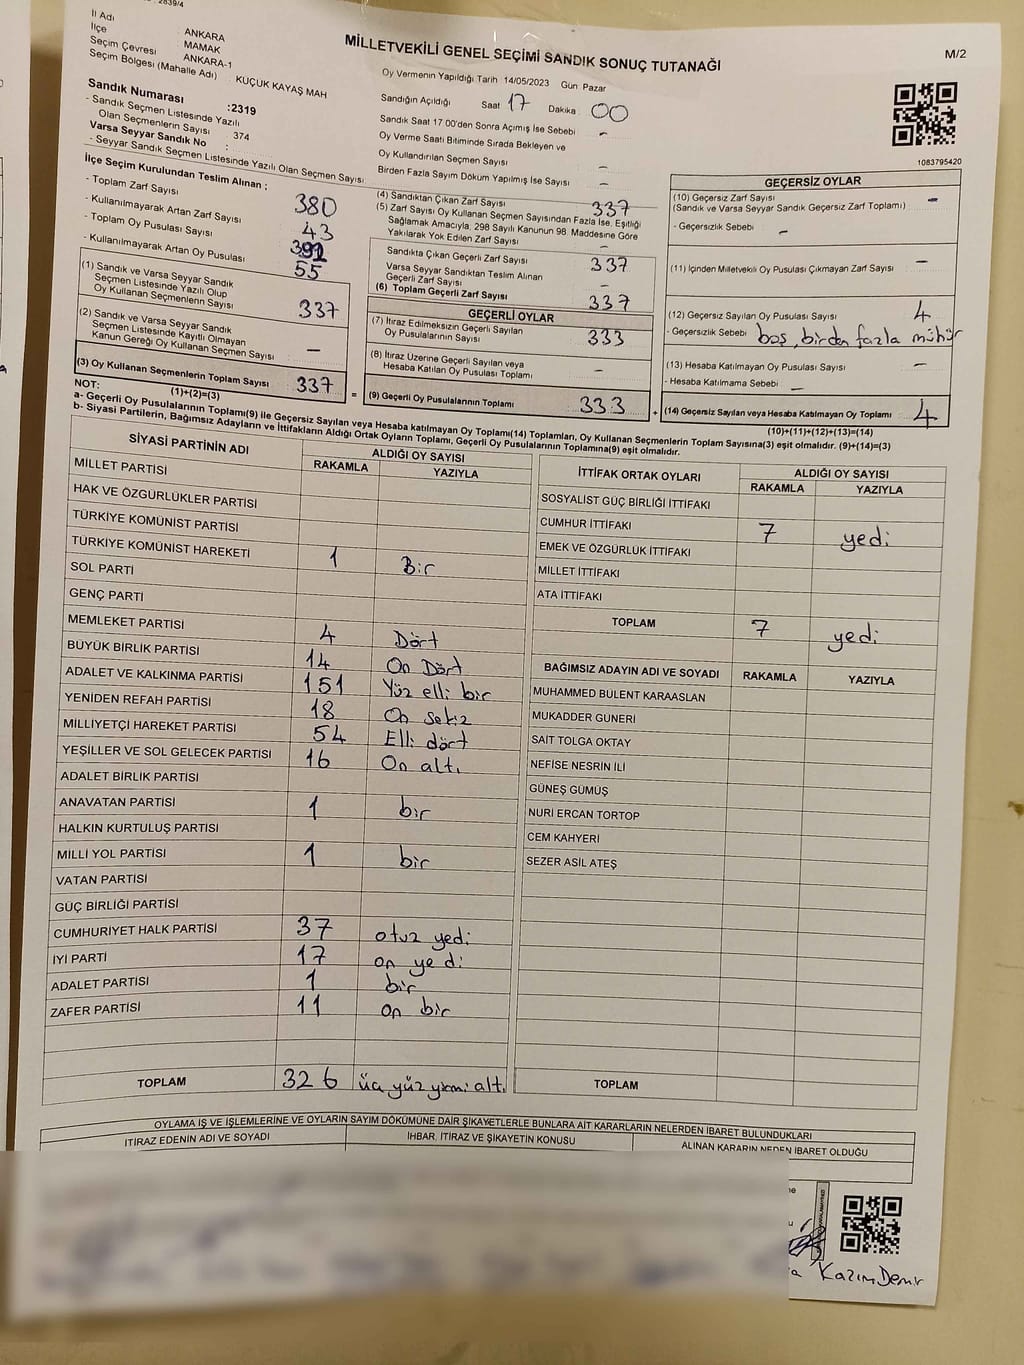 2839/4
M/2
MİLLETVEKİLİ GENEL SEÇİMİ SANDIK SONUÇ TUTANAĞI
İl Adı : ANKARA
İlçe : MAMAK
Seçim Çevresi : ANKARA-1
Seçim Bölgesi (Mahalle Adı) : KÜÇÜK KAYAŞ MAH
Sandık Numarası :2319
- Sandık Seçmen Listesinde Yazılı
Olan Seçmenlerin Sayısı : 374
Varsa Seyyar Sandık No :
- Seyyar Sandık Seçmen Listesinde Yazılı Olan Seçmen Sayısı:
Oy Vermenin Yapıldığı Tarih 14/05/2023 Gün Pazar
Sandığın Açıldığı Saat 17 Dakika 00
Sandık Saat 17 00'den Sonra Açımış İse Sebebi -
Oy Verme Saati Bitiminde Sırada Bekleyen ve
Oy Kullandırılan Seçmen Sayısı -
Birden Fazla Sayım Döküm Yapılmış İse Sayısı -
1083795420
İlçe Seçim Kurulundan Teslim Alınan ;
- Toplam Zarf Sayısı 380
- Kullanılmayarak Artan Zarf Sayısı 43
- Toplam Oy Pusulası Sayısı 392
- Kullanılmayarak Artan Oy Pusulası 55
(1) Sandık ve Varsa Seyyar Sandık
Seçmen Listesinde Yazılı Olup
Oy Kullanan Seçmenlerin Sayısı 337
(2) Sandık ve Varsa Seyyar Sandık
Seçmen Listesinde Kayıtlı Olmayan
Kanun Gereği Oy Kullanan Seçmen Sayısı -
(3) Oy Kullanan Seçmenlerin Toplam Sayısı 337
(1)+(2)=(3)
(4) Sandıktan Çıkan Zarf Sayısı 337
(5) Zarf Sayısı Oy Kullanan Seçmen Sayısından Fazla İse, Eşitliği
Sağlamak Amacıyla, 298 Sayılı Kanunun 98. Maddesine Göre
Yakılarak Yok Edilen Zarf Sayısı -
Sandıkta Çıkan Geçerli Zarf Sayısı 337
Varsa Seyyar Sandıktan Teslim Alınan
Geçerli Zarf Sayısı -
(6) Toplam Geçerli Zarf Sayısı 337
GEÇERLİ OYLAR
(7) İtiraz Edilmeksizin Geçerli Sayılan
Oy Pusulalarının Sayısı 333
(8) İtiraz Üzerine Geçerli Sayılan veya
Hesaba Katılan Oy Pusulası Toplamı -
= (9) Geçerli Oy Pusulalarının Toplamı 333 +
GEÇERSİZ OYLAR
(10) Geçersiz Zarf Sayısı
(Sandık ve Varsa Seyyar Sandık Geçersiz Zarf Toplamı) -
- Geçersizlik Sebebi -
(11) İçinden Milletvekili Oy Pusulası Çıkmayan Zarf Sayısı -
(12) Geçersiz Sayılan Oy Pusulası Sayısı 4
- Geçersizlik Sebebi boş, birden fazla mühür
(13) Hesaba Katılmayan Oy Pusulası Sayısı -
- Hesaba Katılmama Sebebi -
(14) Geçersiz Sayılan veya Hesaba Katılmayan Oy Toplamı 4
(10)+(11)+(12)+(13)=(14)
NOT:
a- Geçerli Oy Pusulalarının Toplamı(9) ile Geçersiz veya Hesaba katılmayan Oy Toplamı(14) Toplamları, Oy Kullanan Seçmenlerin Toplam Sayısına(3) eşit olmalıdır. (9)+(14)=(3)
b- Siyasi Partilerin, Bağımsız Adayların ve İttifakların Aldığı Ortak Oyların Toplamı, Geçerli Oy Pusulalarının Toplamına(9) eşit olmalıdır.
SİYASİ PARTİNİN ADI ALDIĞI OY SAYISI
RAKAMLA YAZIYLA
MİLLET PARTİSİ
HAK VE ÖZGÜRLÜKLER PARTİSİ
TÜRKİYE KOMÜNİST PARTİSİ
TÜRKİYE KOMÜNİST HAREKETİ 1 Bir
SOL PARTİ
GENÇ PARTİ
MEMLEKET PARTİSİ 4 Dört
BÜYÜK BİRLİK PARTİSİ 14 On Dört
ADALET VE KALKINMA PARTİSİ 151 Yüz elli bir
YENİDEN REFAH PARTİSİ 18 On sekiz
MİLLİYETÇİ HAREKET PARTİSİ 54 Elli dört
YEŞİLLER VE SOL GELECEK PARTİSİ 16 On altı
ADALET BİRLİK PARTİSİ
ANAVATAN PARTİSİ 1 bir
HALKIN KURTULUŞ PARTİSİ
MİLLİ YOL PARTİSİ 1 bir
VATAN PARTİSİ
GÜÇ BİRLİĞİ PARTİSİ
CUMHURİYET HALK PARTİSİ 37 otuz yedi
İYİ PARTİ 17 on yedi
ADALET PARTİSİ 1 bir
ZAFER PARTİSİ 11 on bir
TOPLAM 326 üç yüz yirmi altı
İTTİFAK ORTAK OYLARI ALDIĞI OY SAYISI
RAKAMLA YAZIYLA
SOSYALİST GÜÇ BİRLİĞİ İTTİFAKI
CUMHUR İTTİFAKI 7 yedi
EMEK VE ÖZGÜRLÜK İTTİFAKI
MİLLET İTTİFAKI
ATA İTTİFAKI
TOPLAM 7 yedi
BAĞIMSIZ ADAYIN ADI VE SOYADI RAKAMLA YAZIYLA
MUHAMMED BÜLENT KARAASLAN
MUKADDER GÜNERİ
SAİT TOLGA OKTAY
NEFİSE NESRİN İLİ
GÜNEŞ GÜMÜŞ
NURİ ERCAN TORTOP
CEM KAHYERİ
SEZER ASİL ATEŞ
TOPLAM
OYLAMA İŞ VE İŞLEMLERİNE VE OYLARIN SAYIM DÖKÜMÜNE DAİR ŞİKAYETLERLE BUNLARA AİT KARARLARIN NELERDEN İBARET BULUNDUKLARI
İTİRAZ EDENİN ADI VE SOYADI İHBAR, İTİRAZ VE ŞİKAYETİN KONUSU ALINAN KARARIN NEDEN İBARET OLDUĞU
Kazım Demir